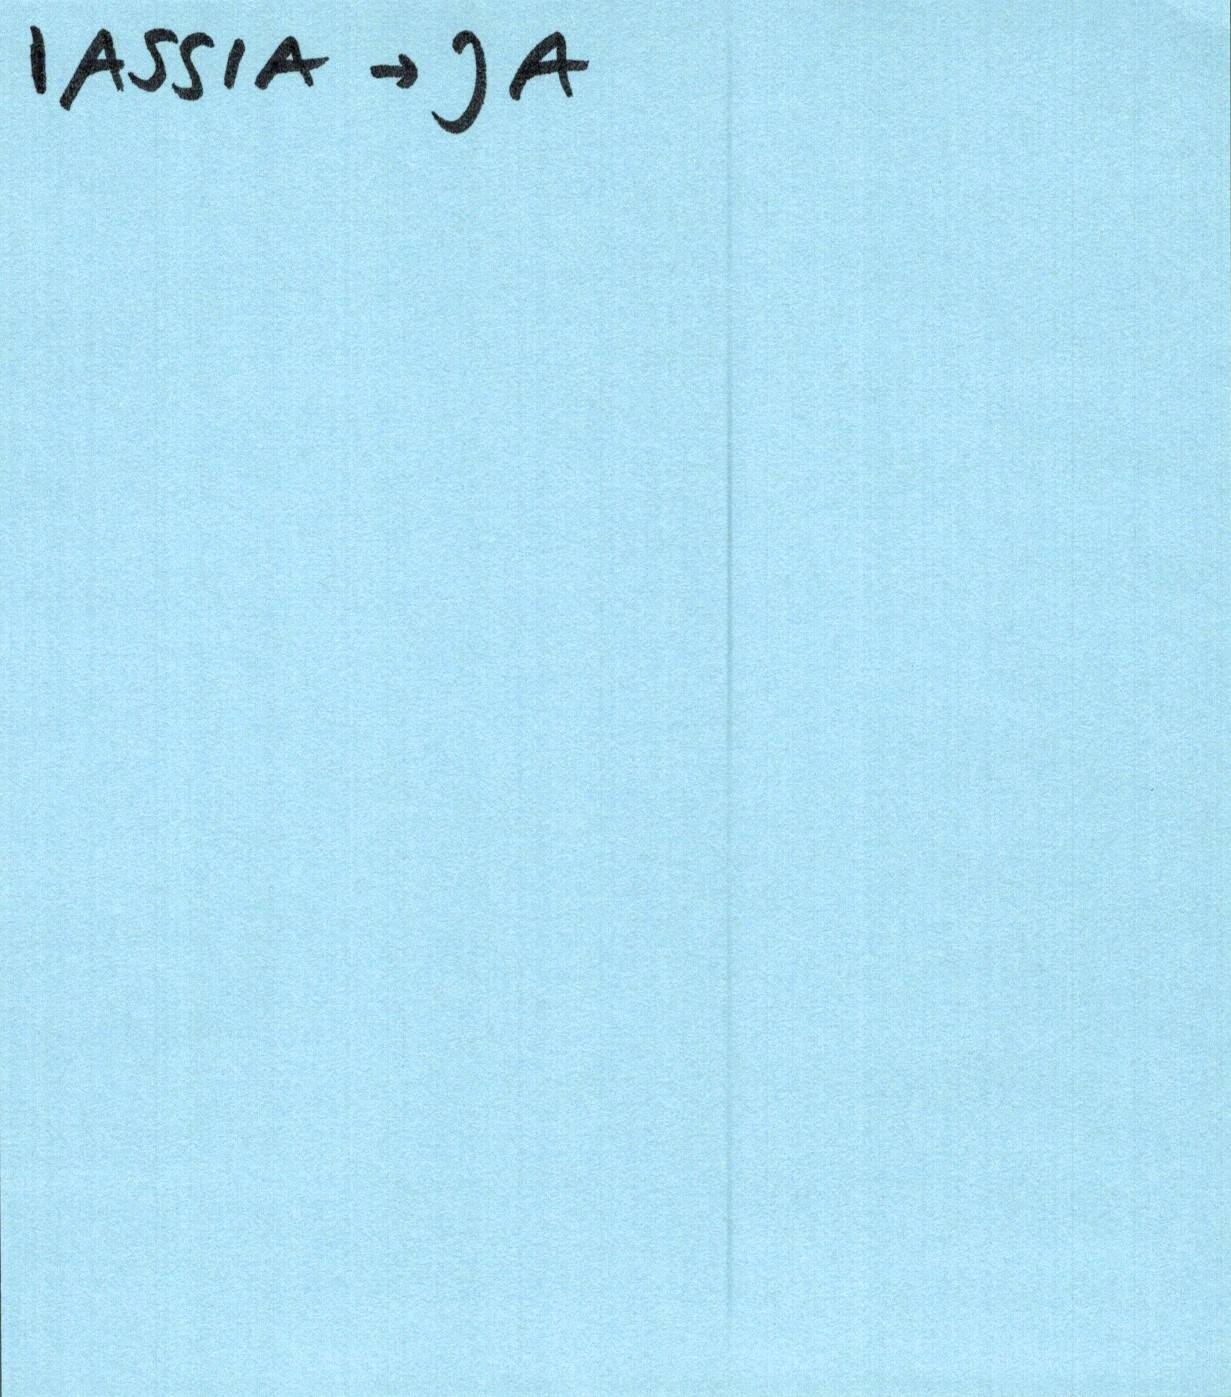 IASSIA → JA